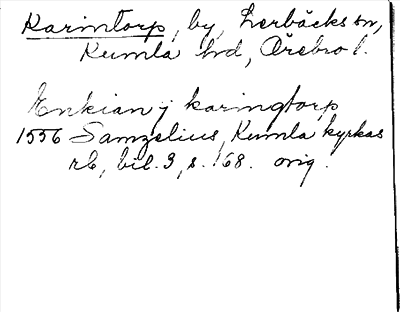 Karintorp, by, Lerbäcks sn,
Kumla hd, Örebro l.
Enkian j karingtorp
1556 Samzelius, Kumla kyrkas
rb, bil. 3, s. 168. orig.